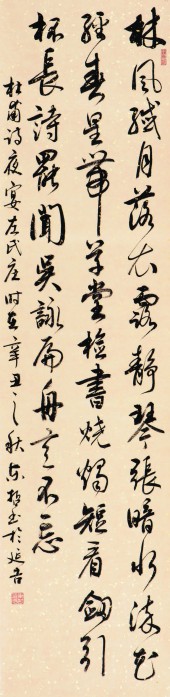 林風纖月落衣露靜琴張暗水流花
徑春星帶草堂檢書燒燭短看劍引
杯長詩罷聞吳詠扁舟意不忘
杜甫詩夜宴左氏庄时在辛丑之秋书於延吉